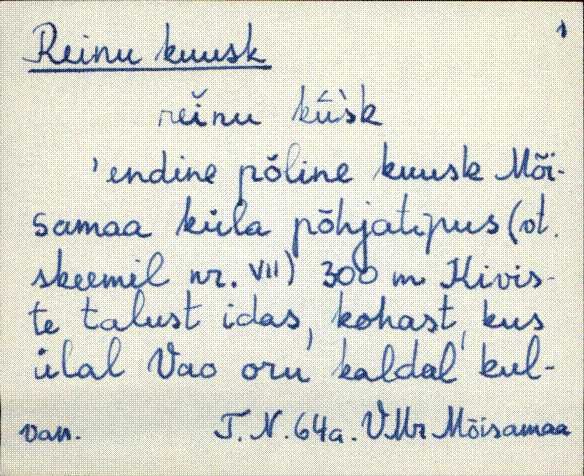 1
Reinu kuusk
reinu kūsk
'endine põline kuusk Mõi-
samaa küla põhjatipus (vt.
skeemil nr. VII) 300 m Kivis-
te talust idas, kohast, kus
ülal Vao oru kaldal kul-
van. T. N. 64a. VMr Mõisamaa